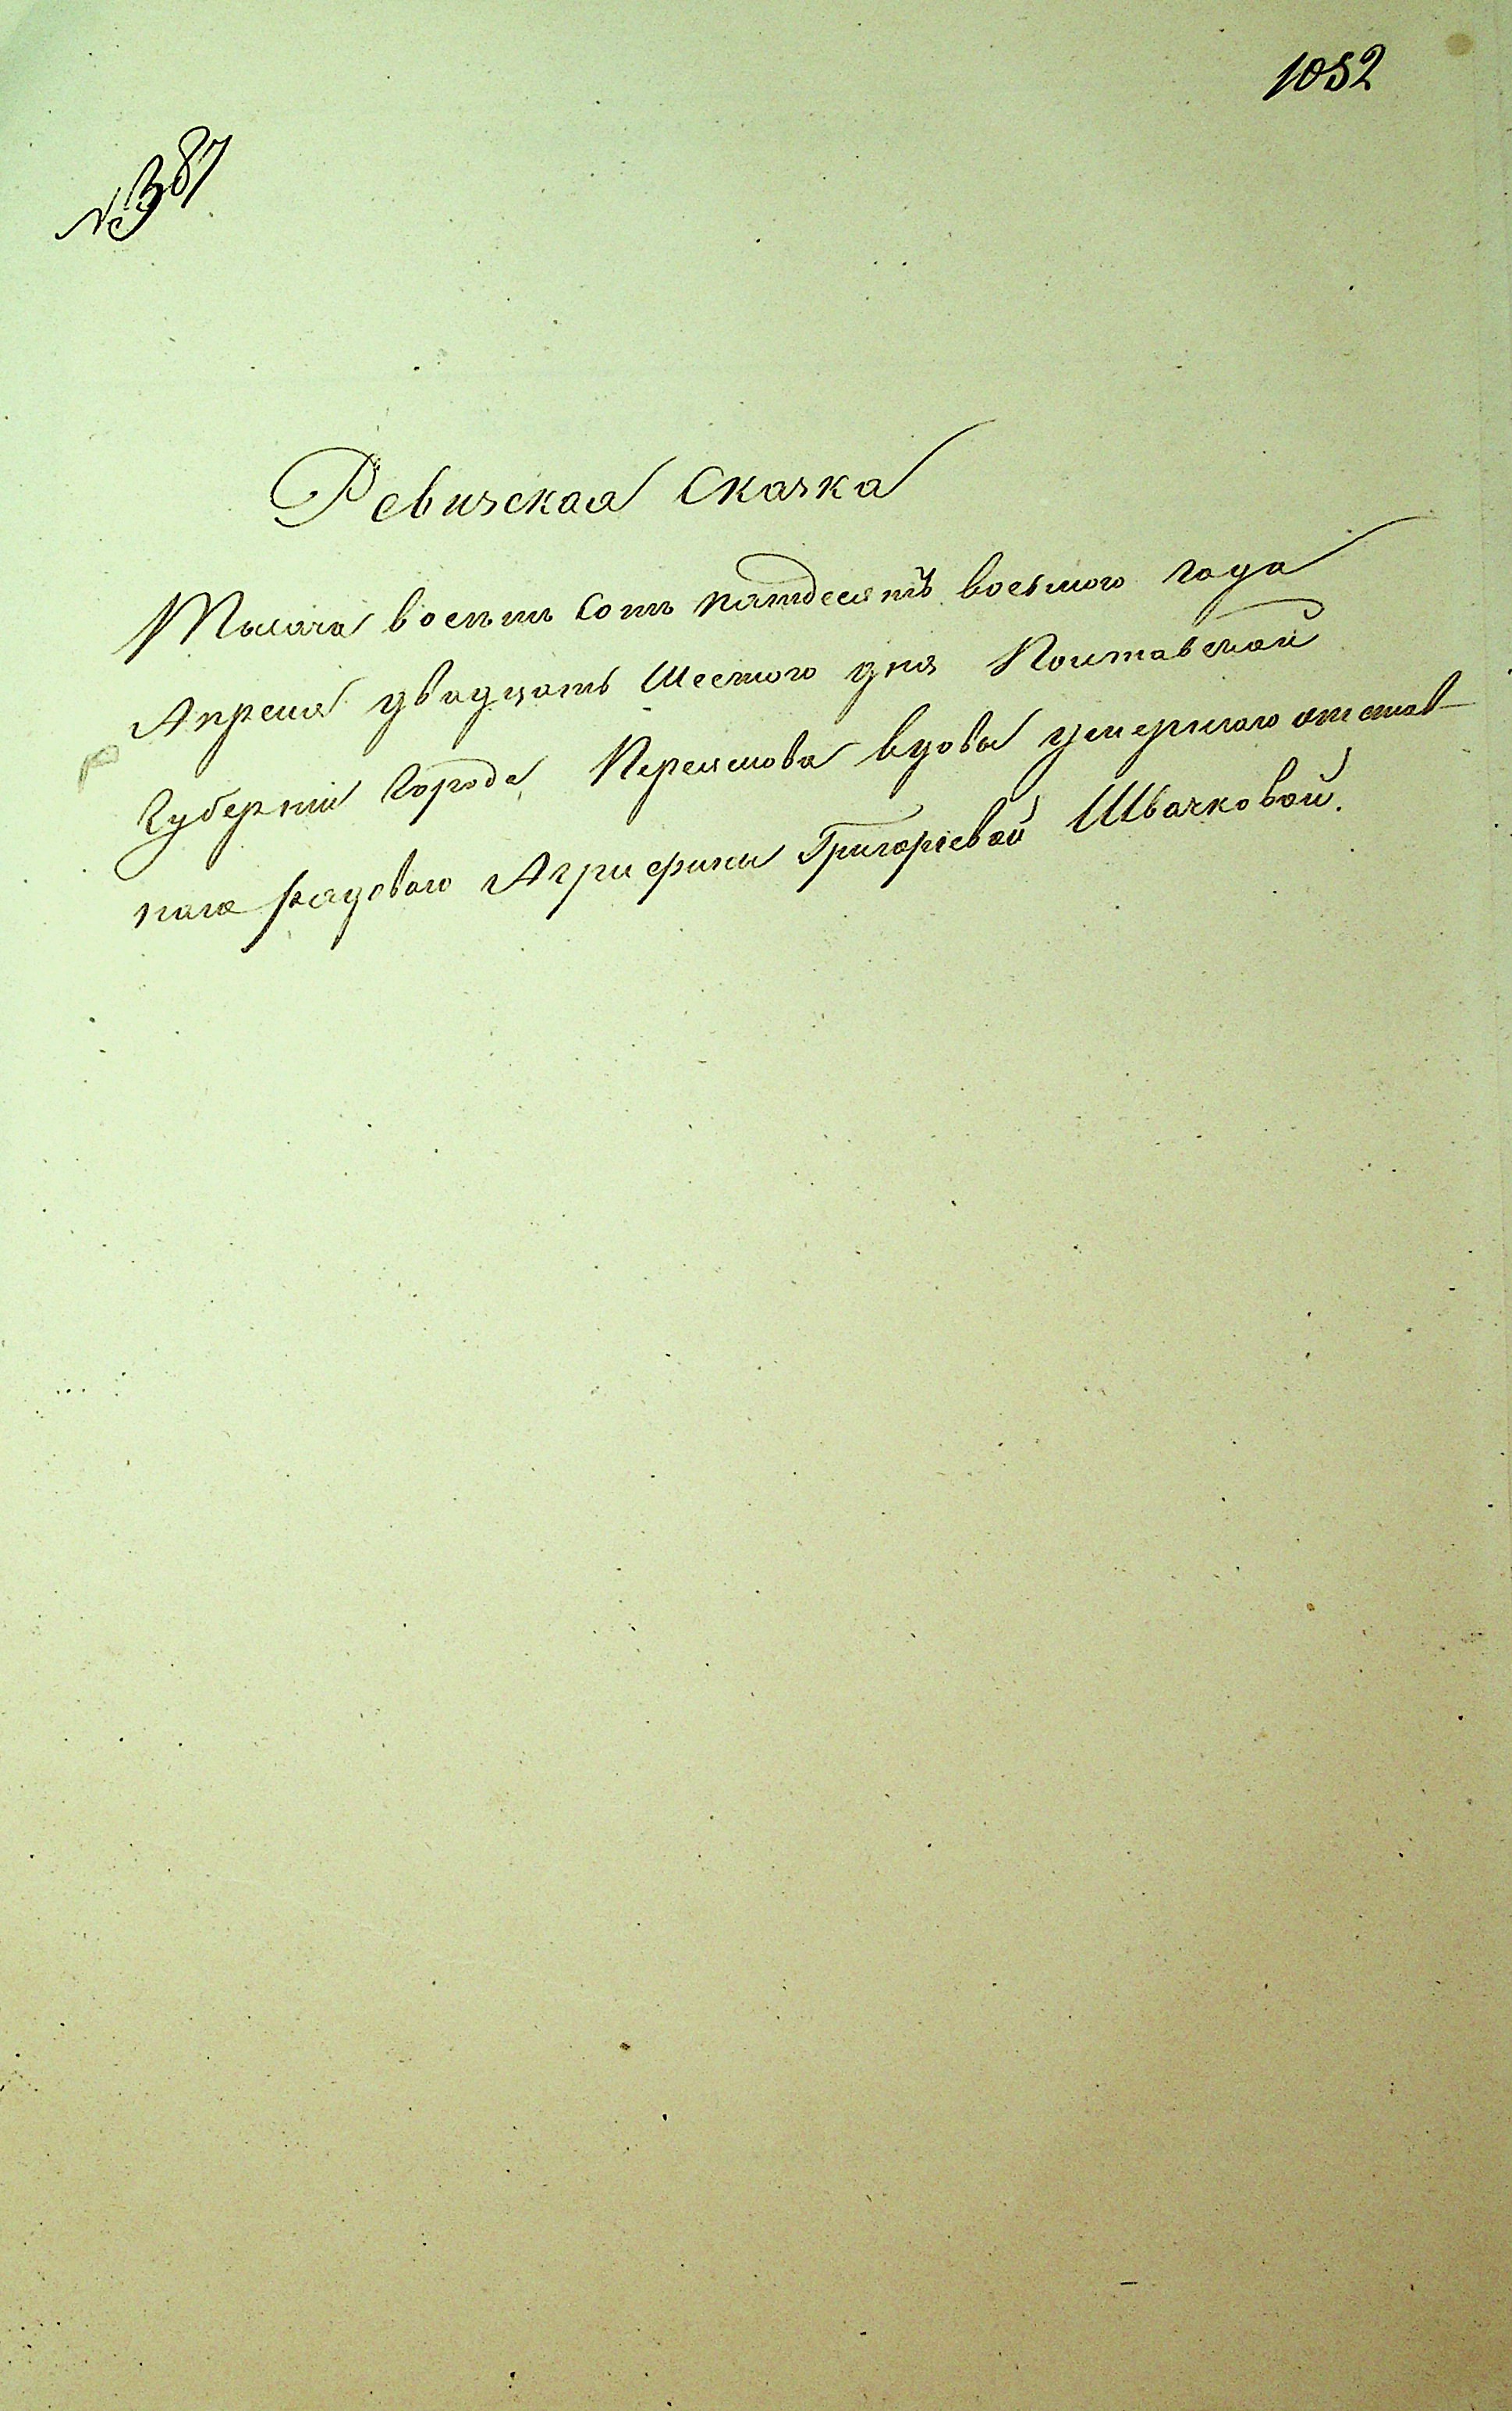 1052
№ 387
Ревизская Сказка
Тысяча восемь сотъ пятдесятъ восьмого года
Апреля двадцать шестого дня Полтавской
Губернии Города Переяслова вдовы умершаго отстав-
наго рядового Агрифины Григорьевой Швачковой.